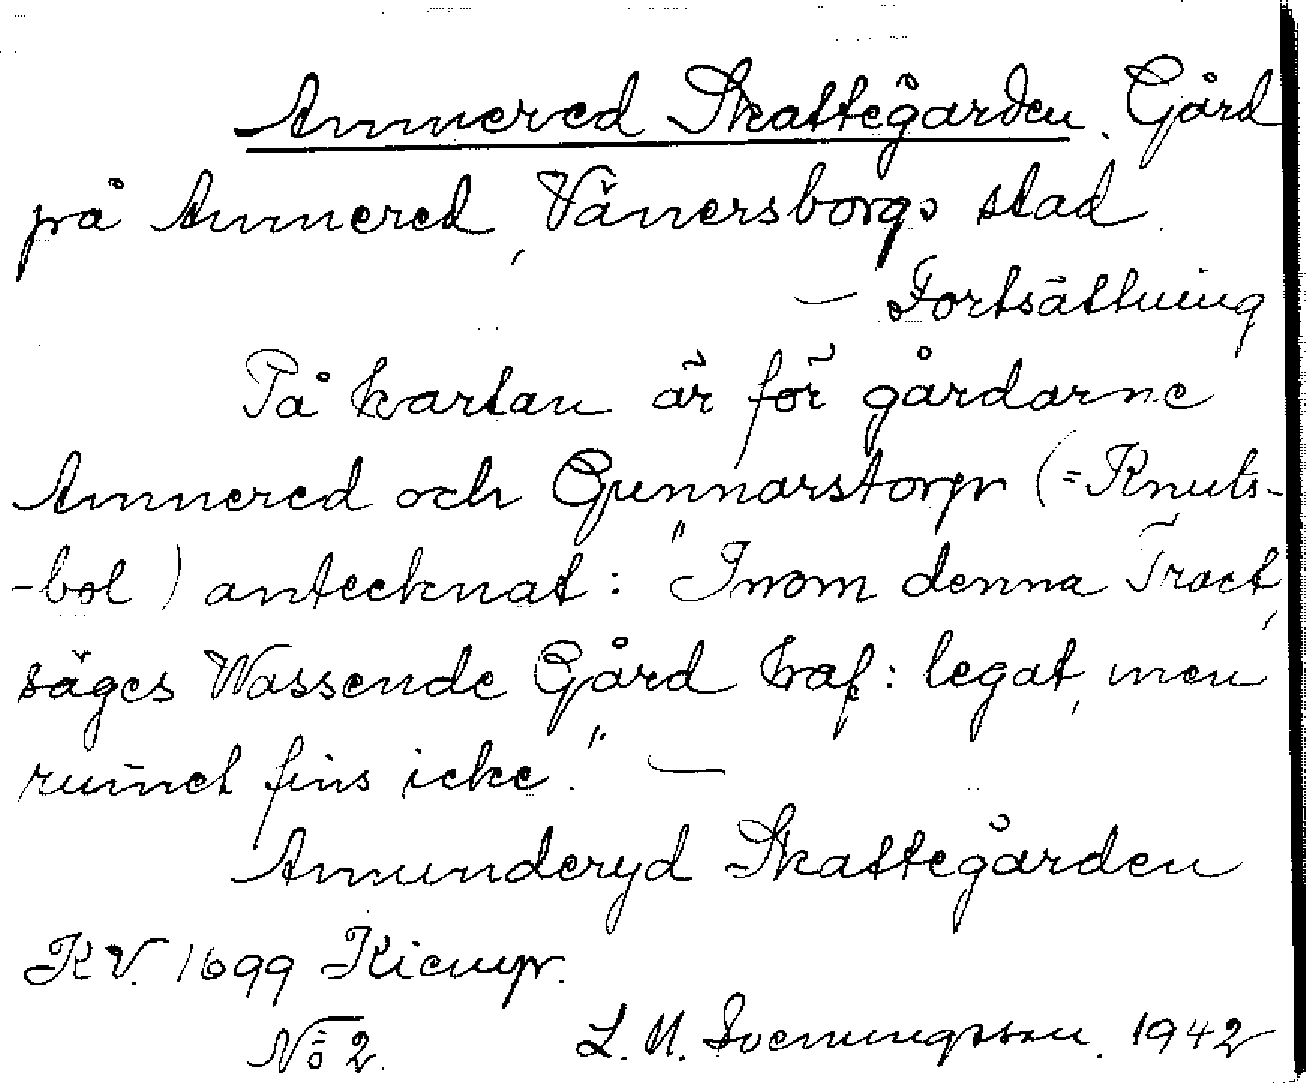 Annered Skattegården. Gård
på Annered, Vänersborgs stad.
— Fortsättning
På kartan är för gårdarne
Annered och Gunnarstorp (= Knuts-
-bol) antecknat: "Inom denna Tract,
säges Wassende Gård waf: legat, men
rum̄et fins icke." —
Amunderyd Skattegården
KV. 1699 Kiempr.
No 2. L. M. Svenungsson. 1942